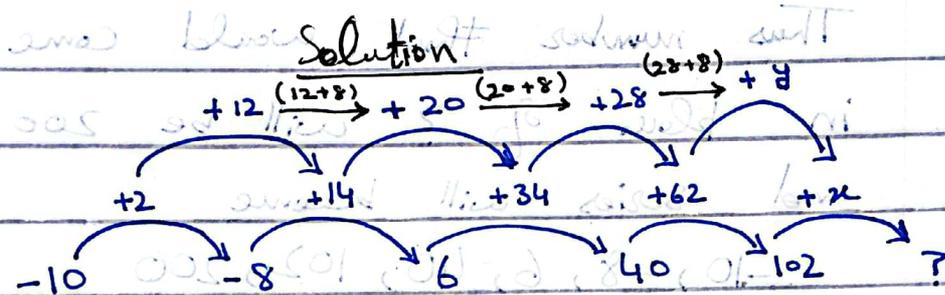 Solution
+12 (12+8) + 20 (20+8) +28 (28+8) + y
+2 +14 +34 +62 + x
-10 -8 6 40 102 ?